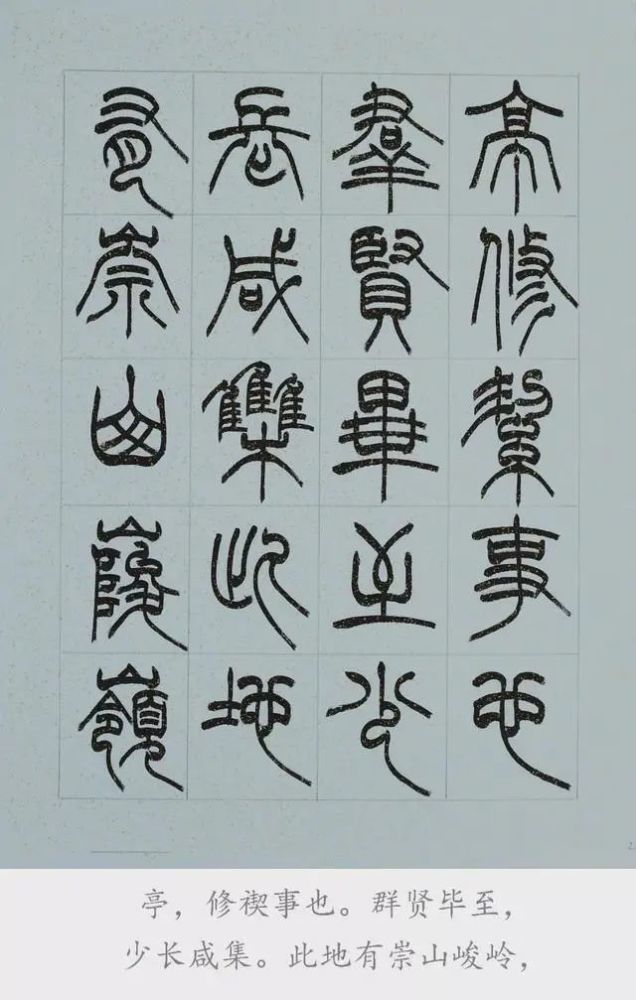 亭修絜事也
羣賢畢至少
長咸雧此地
有崇山峻嶺
亭，修禊事也。群贤毕至，
少长咸集。此地有崇山峻岭，